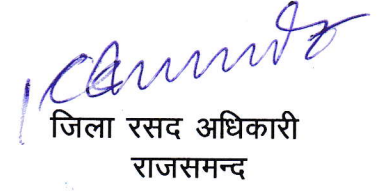 जिला रसद अधिकारी
राजसमन्द